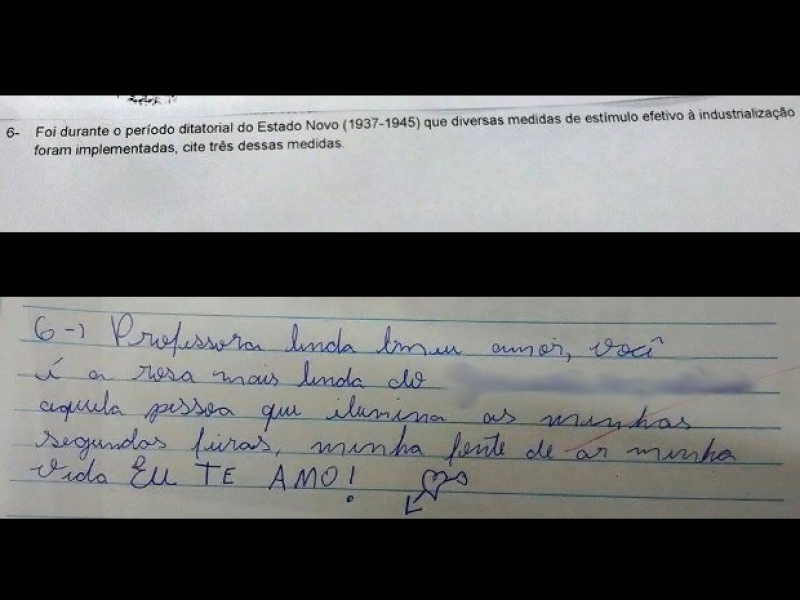 6- Foi durante o período ditatorial do Estado Novo (1937-1945) que diversas medidas de estímulo efetivo à industrialização
foram implementadas, cite três dessas medidas
6-) Professora linda meu amor, você
é a rosa mais linda do
aquela pessoa que ilumina as minhas
segundas feiras, minha fonte de ar minha
vida EU TE AMO!